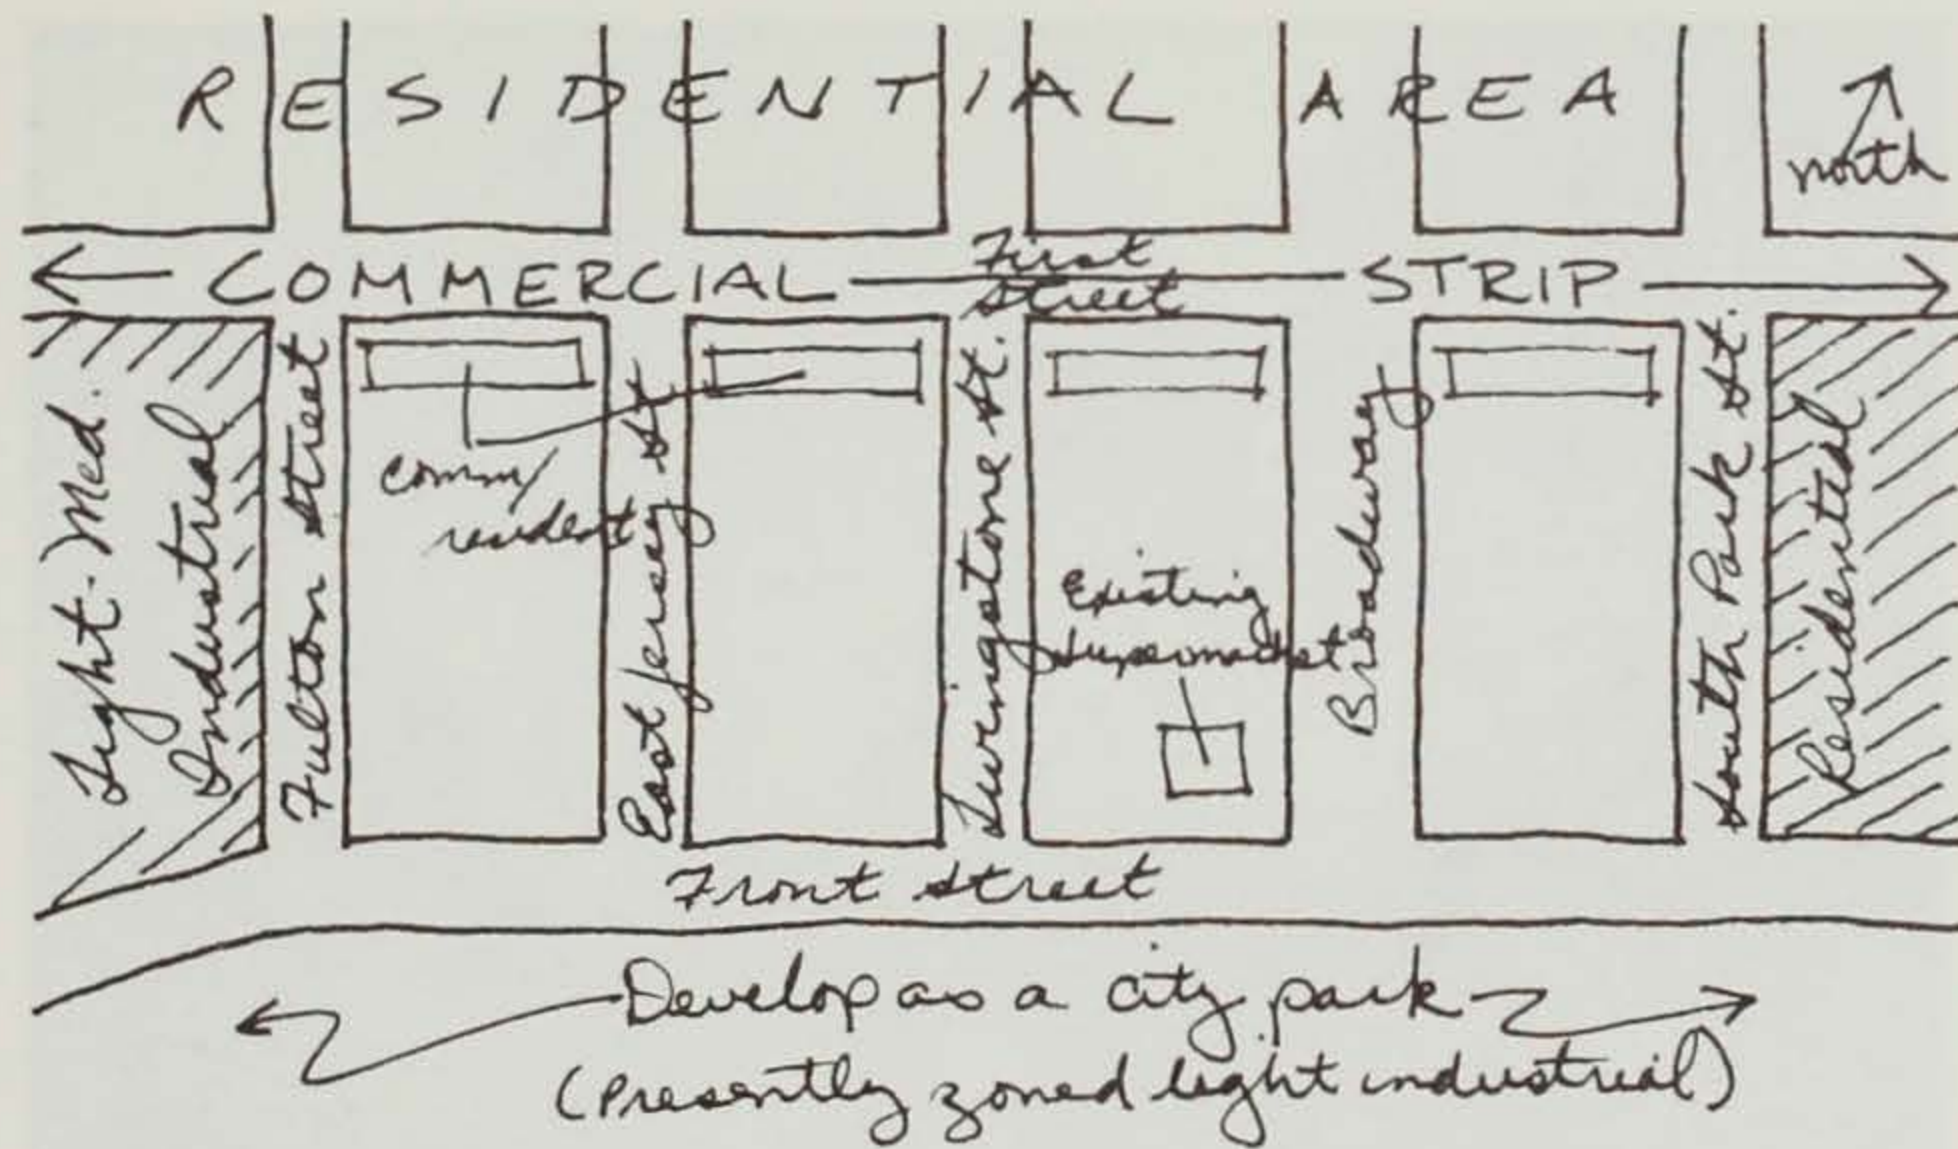 RESIDENTIAL AREA
north
COMMERCIAL
First
Street
STRIP
Light-Med.
Industrial
Fulton Street
comm/
resident
East Jersey St
Livingstone St.
Existing
supermarket
Broadway
South Park St.
Residential
Front Street
Develop as a city park
(presently zoned light industrial)